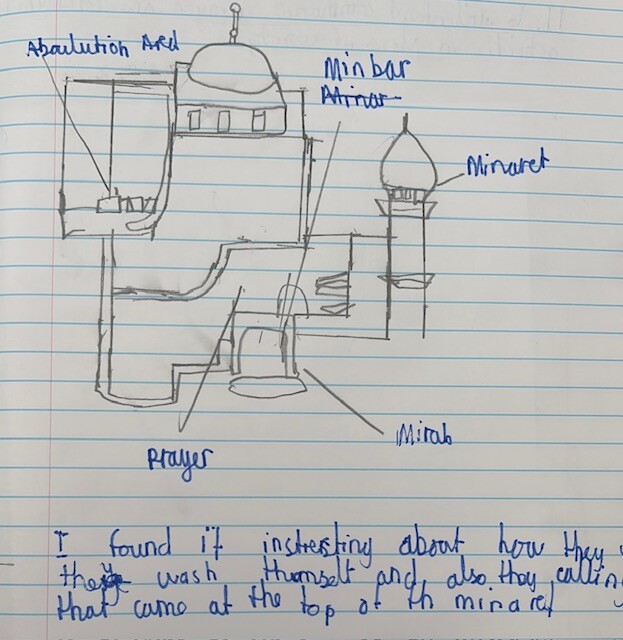 Aboulution Ared
Minbar
Minar
Minaret
Mirab
Prayer
I found it instresting about how they
they wash themself and also they calling
that came at the top of th minaret